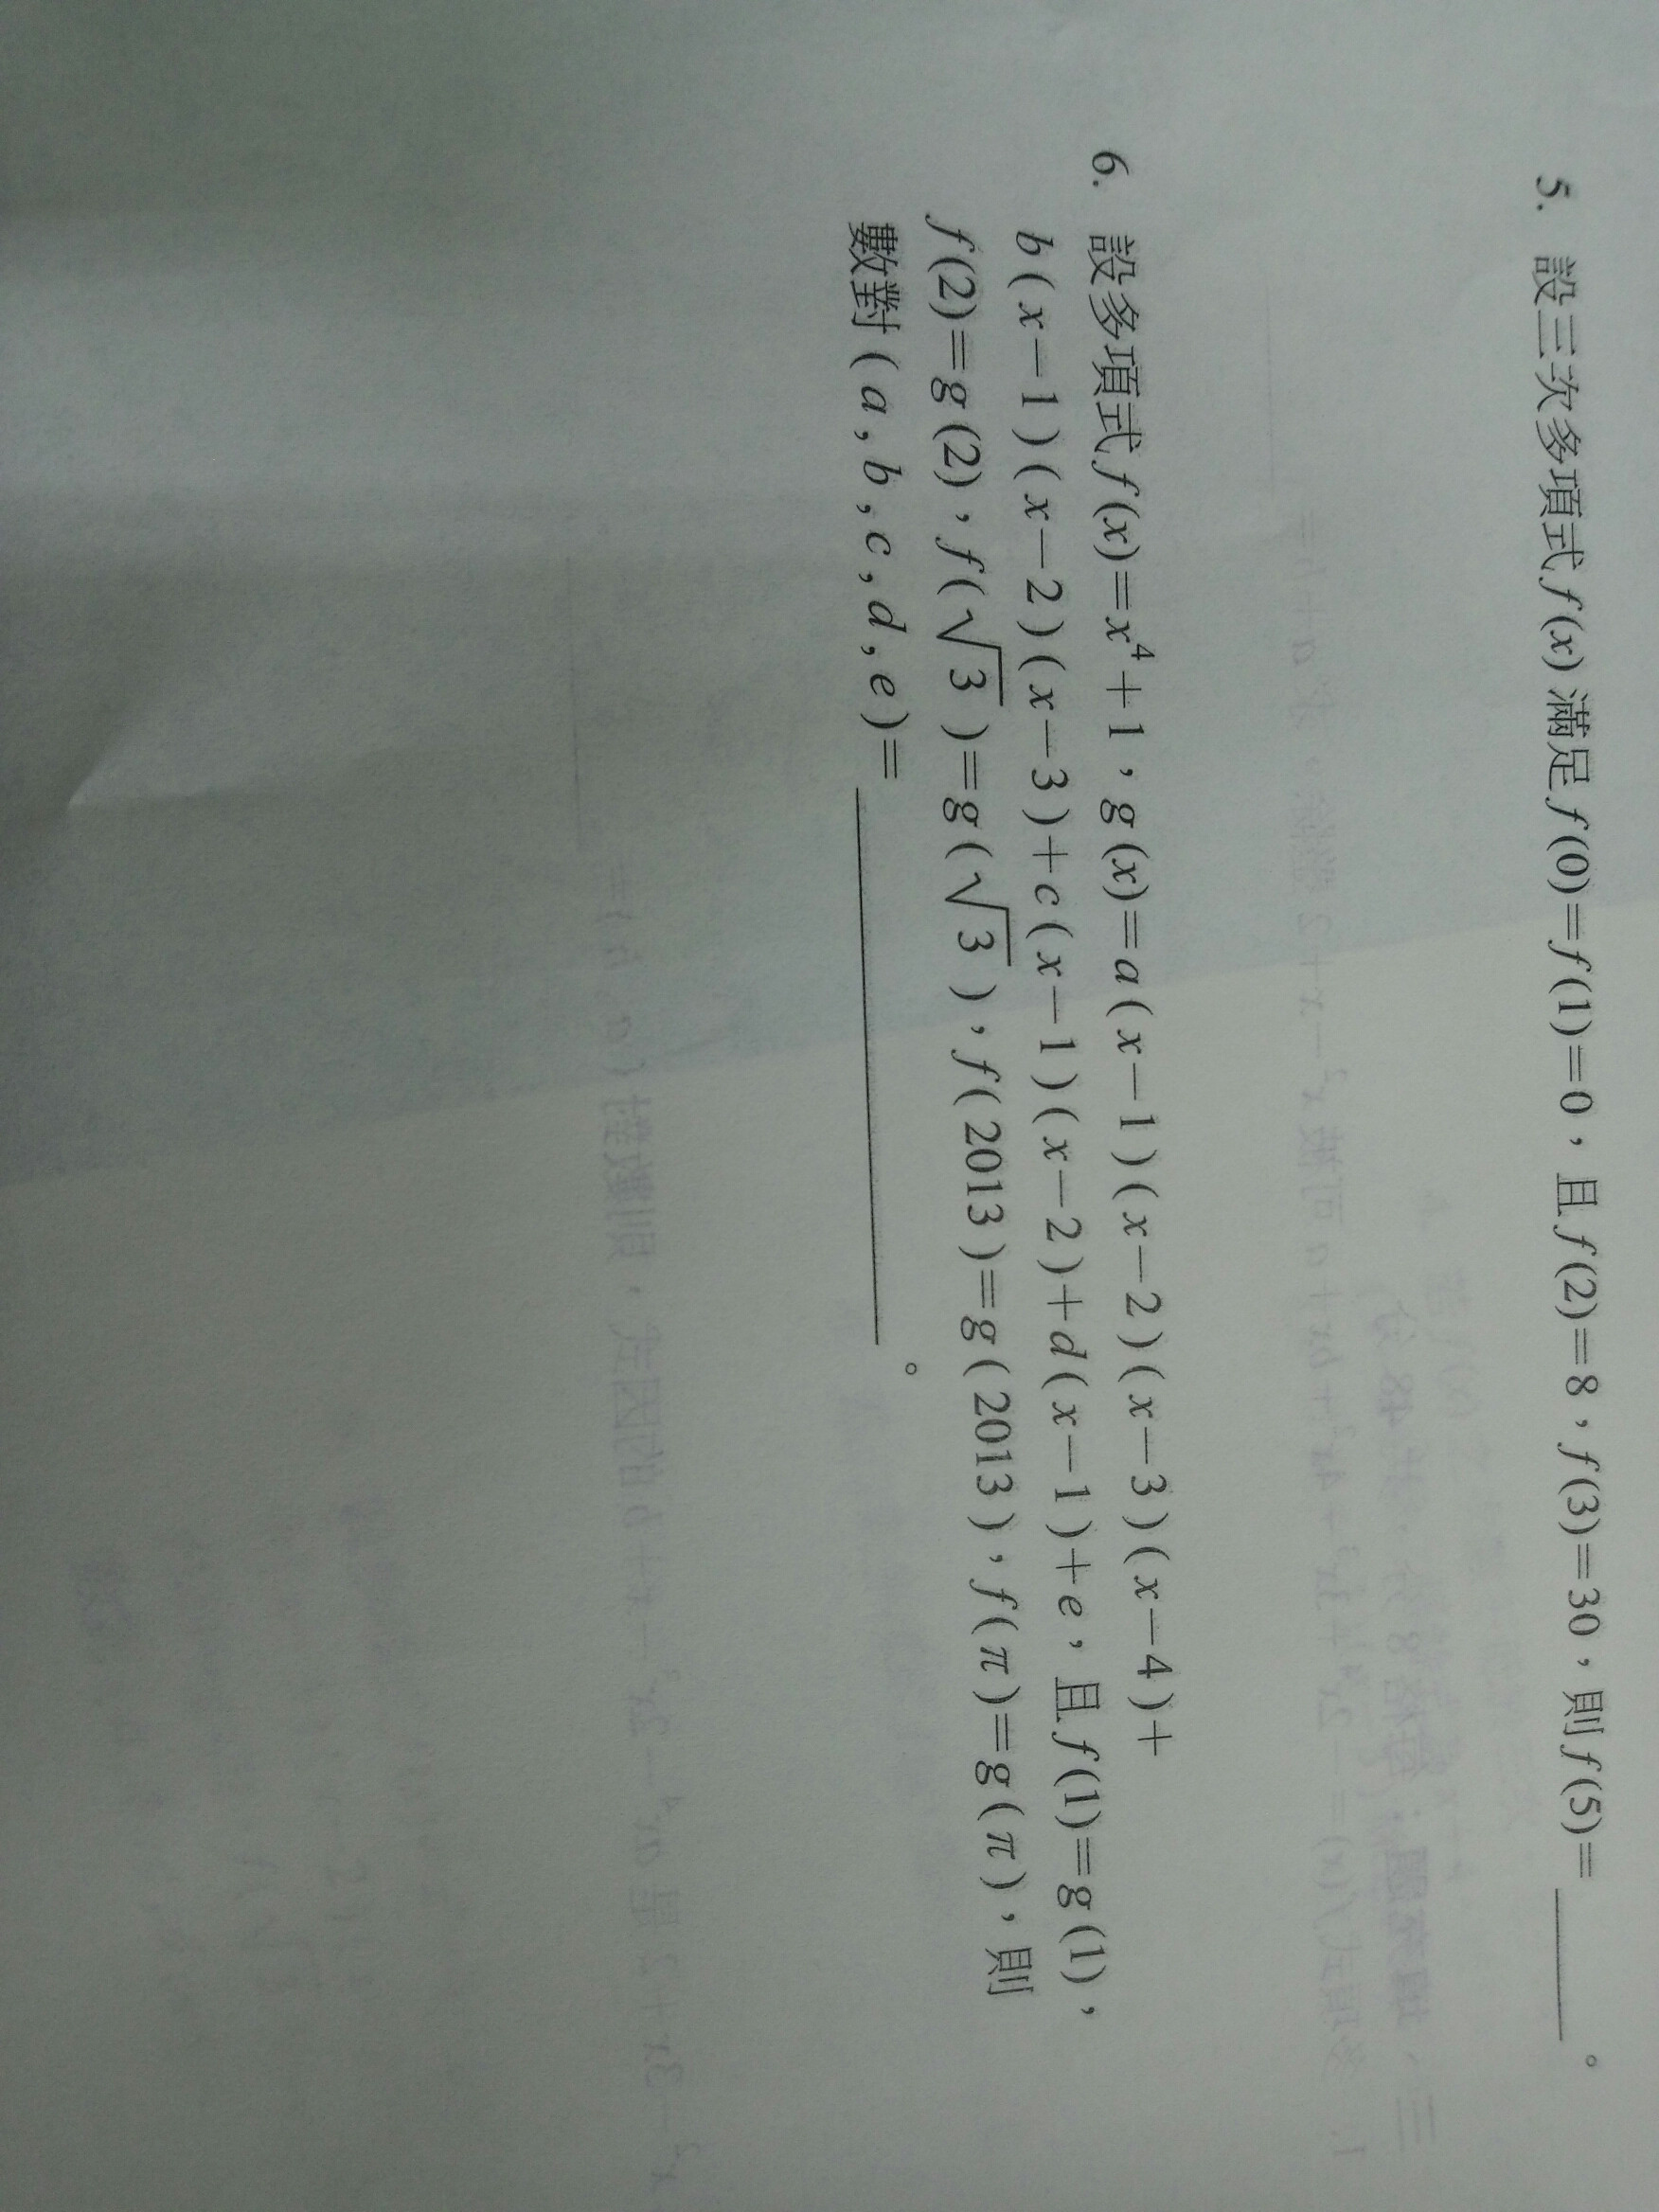 5. 設三次多項式 f(x) 滿足 f(0)=f(1)=0，且 f(2)=8，f(3)=30，則 f(5)=______。
6. 設多項式 f(x)=x⁴+1，g(x)=a(x-1)(x-2)(x-3)(x-4)+
b(x-1)(x-2)(x-3)+c(x-1)(x-2)+d(x-1)+e，且 f(1)=g(1)，
f(2)=g(2)，f(√3)=g(√3)，f(2013)=g(2013)，f(π)=g(π)，則
數對 (a,b,c,d,e)=____________。